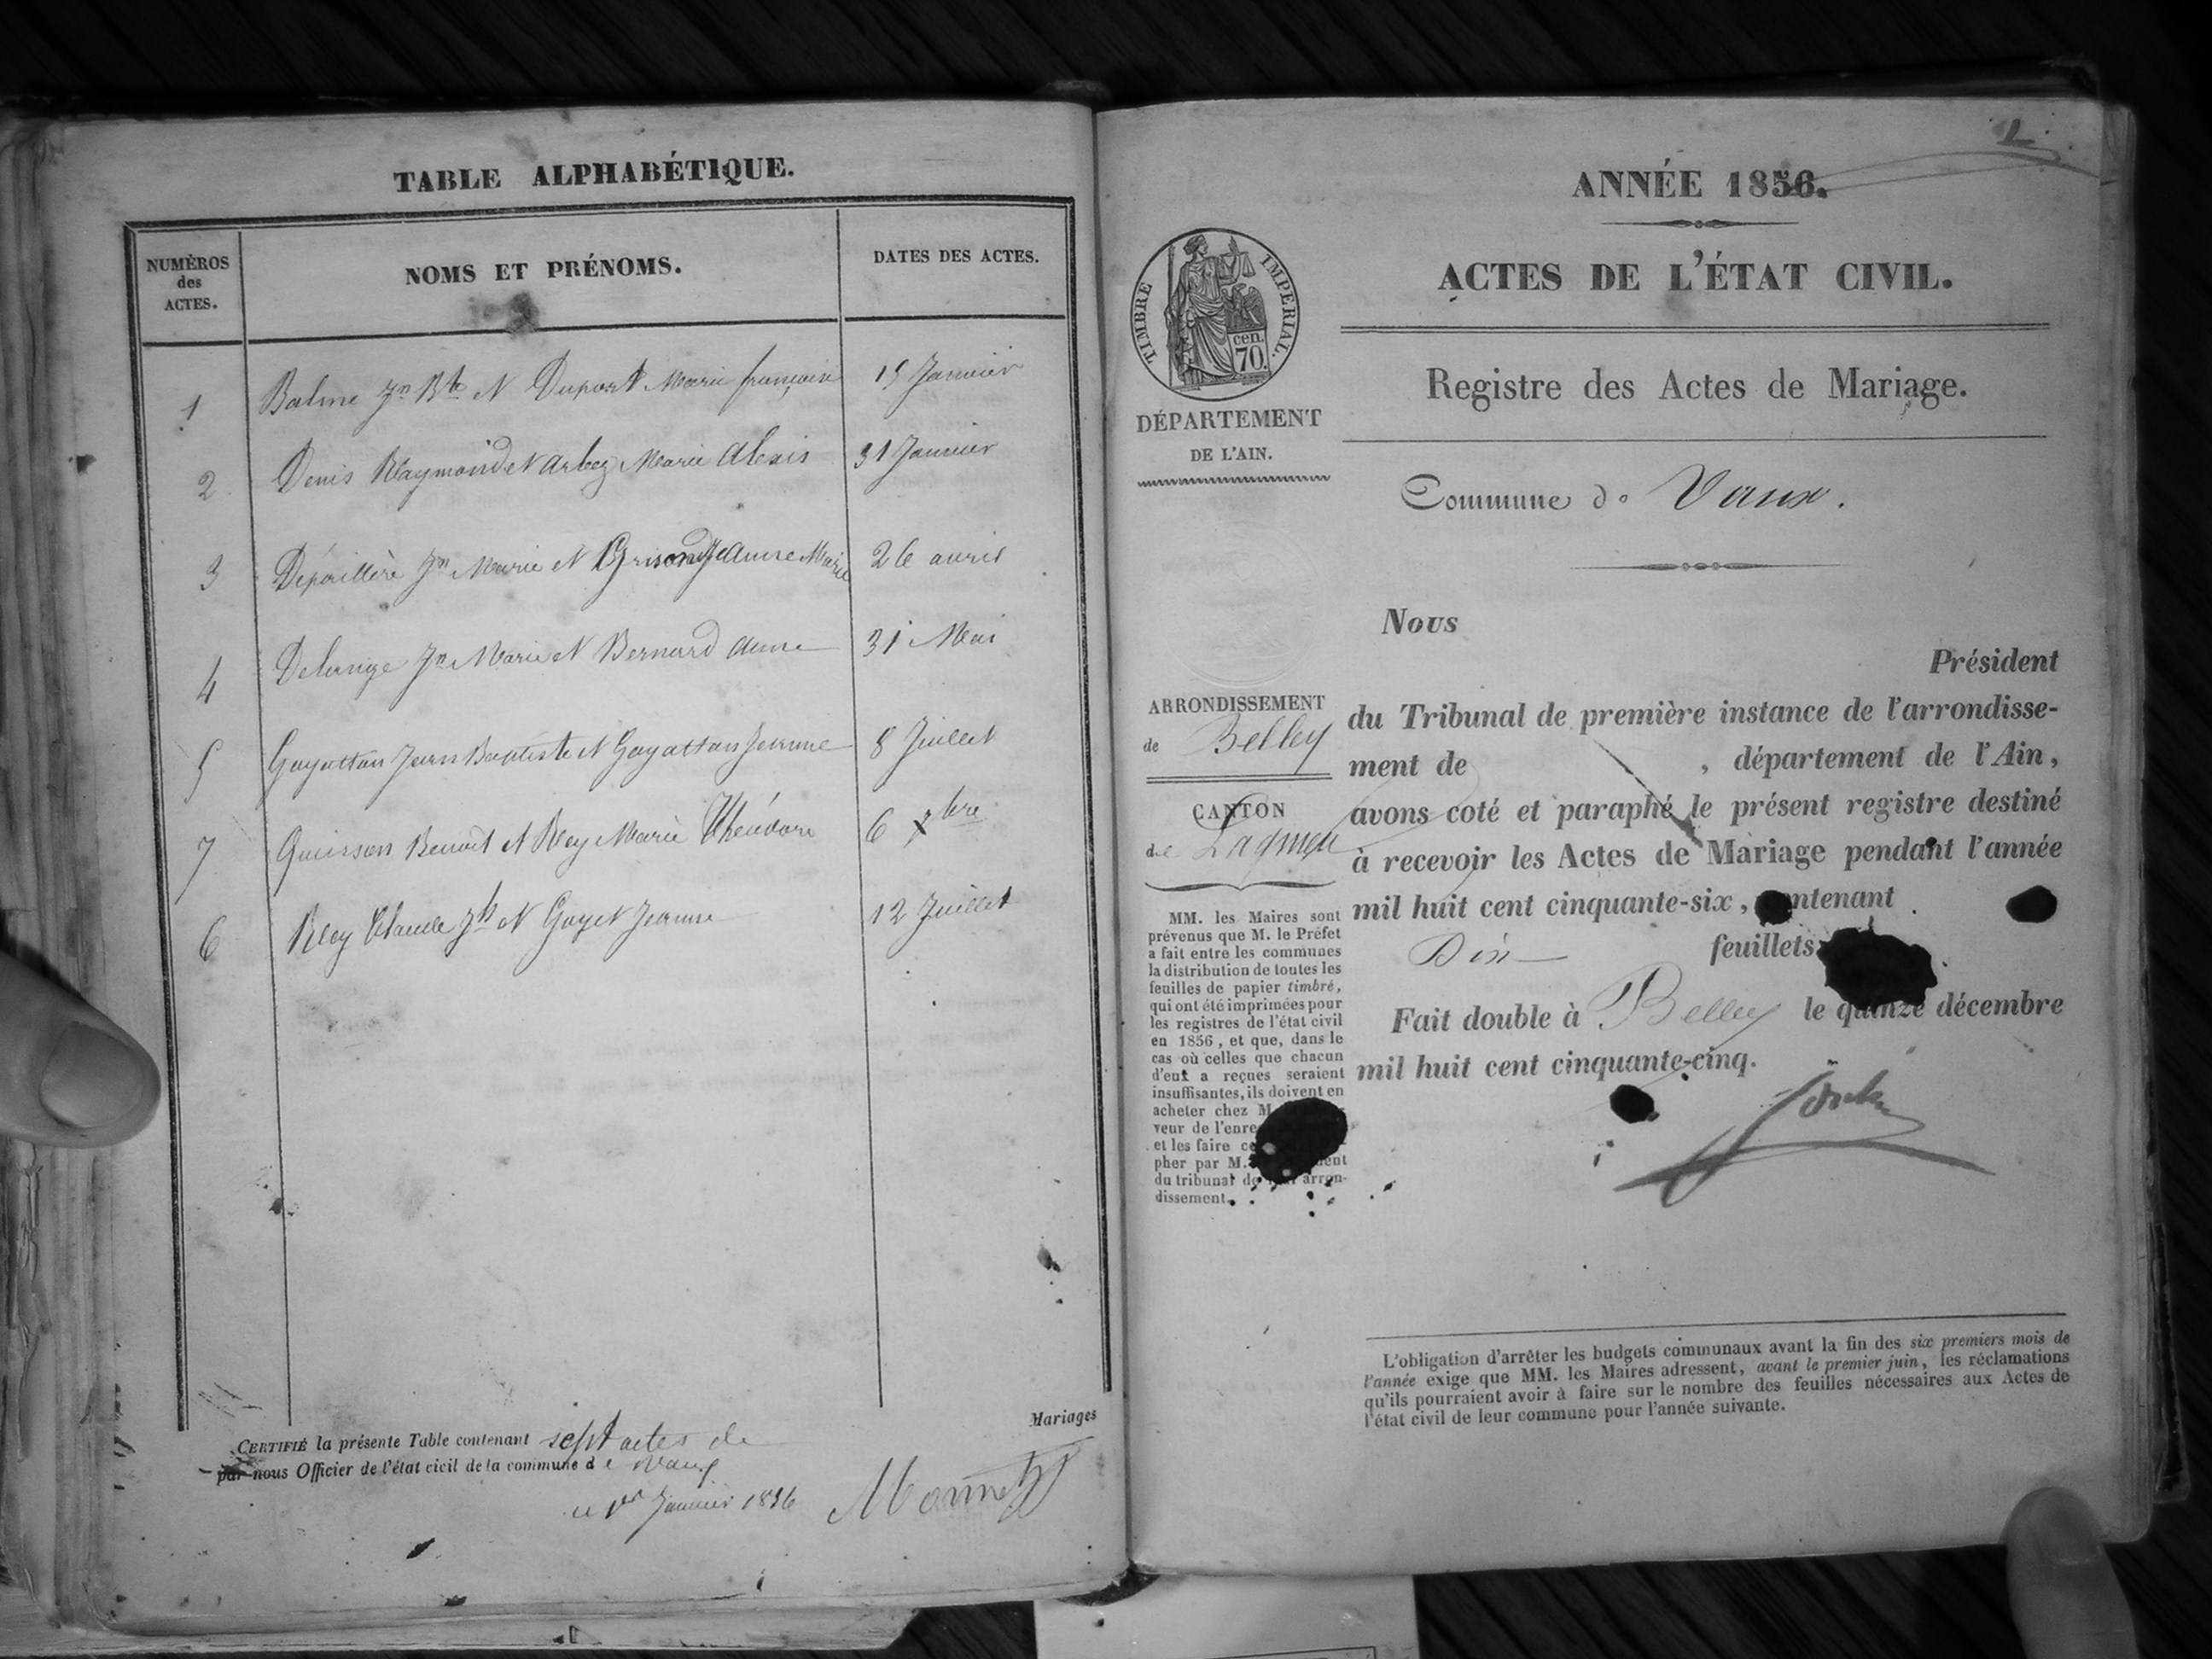 TABLE ALPHABÉTIQUE.
NUMÉROS
des
ACTES.
NOMS ET PRÉNOMS.
DATES DES ACTES.
1 Balme Jn Bte et Duport Marie françoise 15 Janvier
2 Denis Raymond et Arbez Marie Alexis 31 Janvier
3 Jn Marie et Grisond Jeanne Marie 26 avril
4 Delange Jn Marie et Bernard Anne 31 Mai
5 Goyatton Jean Baptiste et Goyatton Jeanne 8 Juillet
7 Quinson Benoit et Rey Marie Théodore 6 xbre
6 Rey Claude Jh et Goyet Jeanne 12 Juillet
Mariages
CERTIFIÉ la présente Table contenant sept actes de
par nous Officier de l'état civil de la commune de Vaux
ce 1er Janvier 1856
2
ANNÉE 1856.
ACTES DE L'ÉTAT CIVIL.
TIMBRE IMPERIAL.
cen.
70.
DÉPARTEMENT
DE L'AIN.
Registre des Actes de Mariage.
Commune de Vaux.
Nous
Président
du Tribunal de première instance de l'arrondisse-
ment de , département de l'Ain,
avons coté et paraphé le présent registre destiné
à recevoir les Actes de Mariage pendant l'année
mil huit cent cinquante-six, contenant
Dix feuillets
Fait double à Belley le quinze décembre
mil huit cent cinquante-cinq.
ARRONDISSEMENT
de Belley
CANTON
de Lagnieu
MM. les Maires sont
prévenus que M. le Préfet
a fait entre les communes
la distribution de toutes les
feuilles de papier timbré,
qui ont été imprimées pour
les registres de l'état civil
en 1856, et que, dans le
cas où celles que chacun
d'eux a reçues seraient
insuffisantes, ils doivent en
acheter chez M.
veur de l'enre
et les faire
pher par M.
du tribunal de arron-
dissement.
L'obligation d'arrêter les budgets communaux avant la fin des six premiers mois de
l'année exige que MM. les Maires adressent, avant le premier juin, les réclamations
qu'ils pourraient avoir à faire sur le nombre des feuilles nécessaires aux Actes de
l'état civil de leur commune pour l'année suivante.